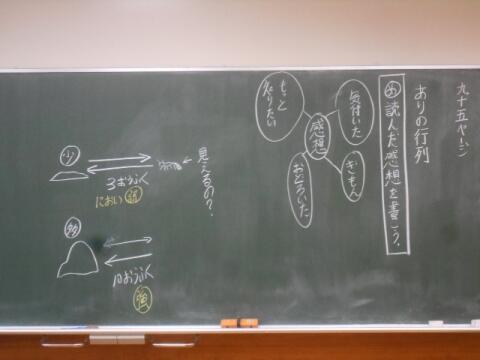 九十五ページ
ありの行列
め 読んだ感想を書こう。
感想
気付いた
ぎもん
もっと知りたい
おどろいた
見えるの？
少
3おうふく
におい 弱
多
10おうふく
強